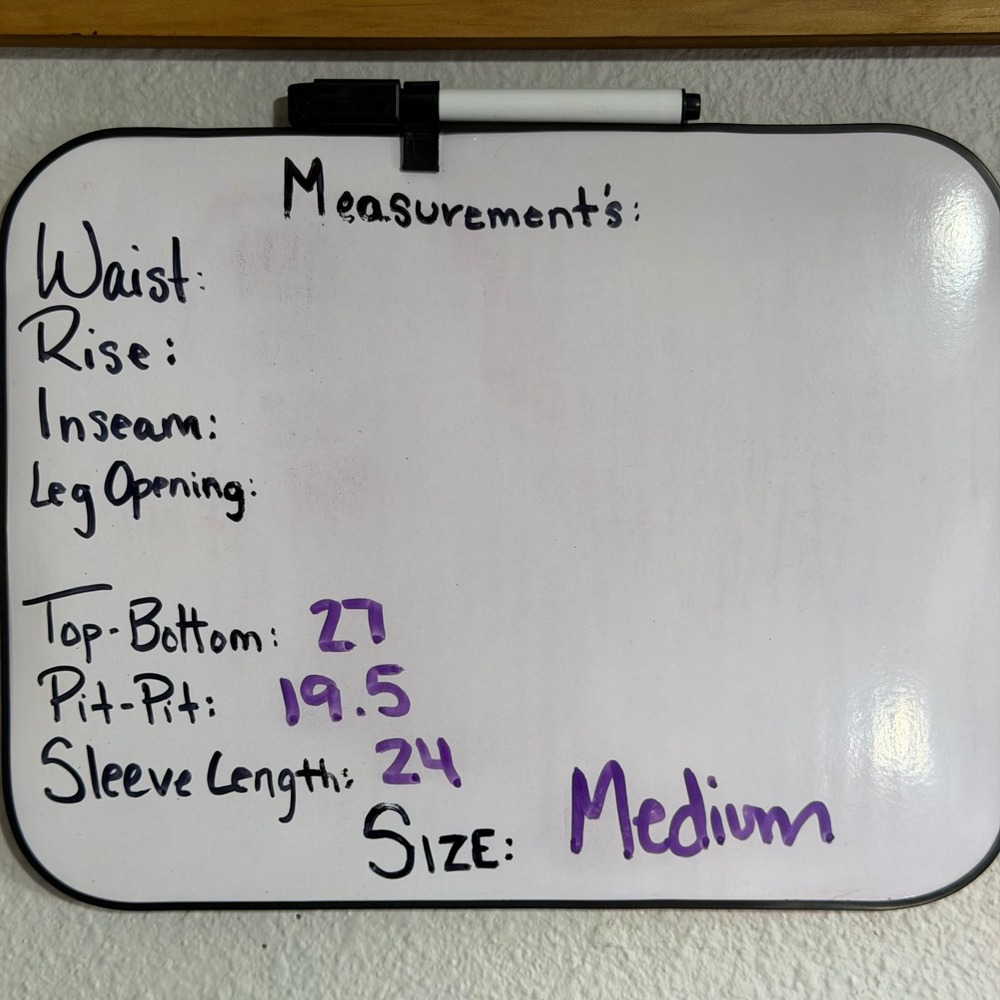 Measurement's:
Waist:
Rise:
Inseam:
Leg Opening:
Top-Bottom: 27
Pit-Pit: 19.5
Sleeve Length: 24
SIZE: Medium